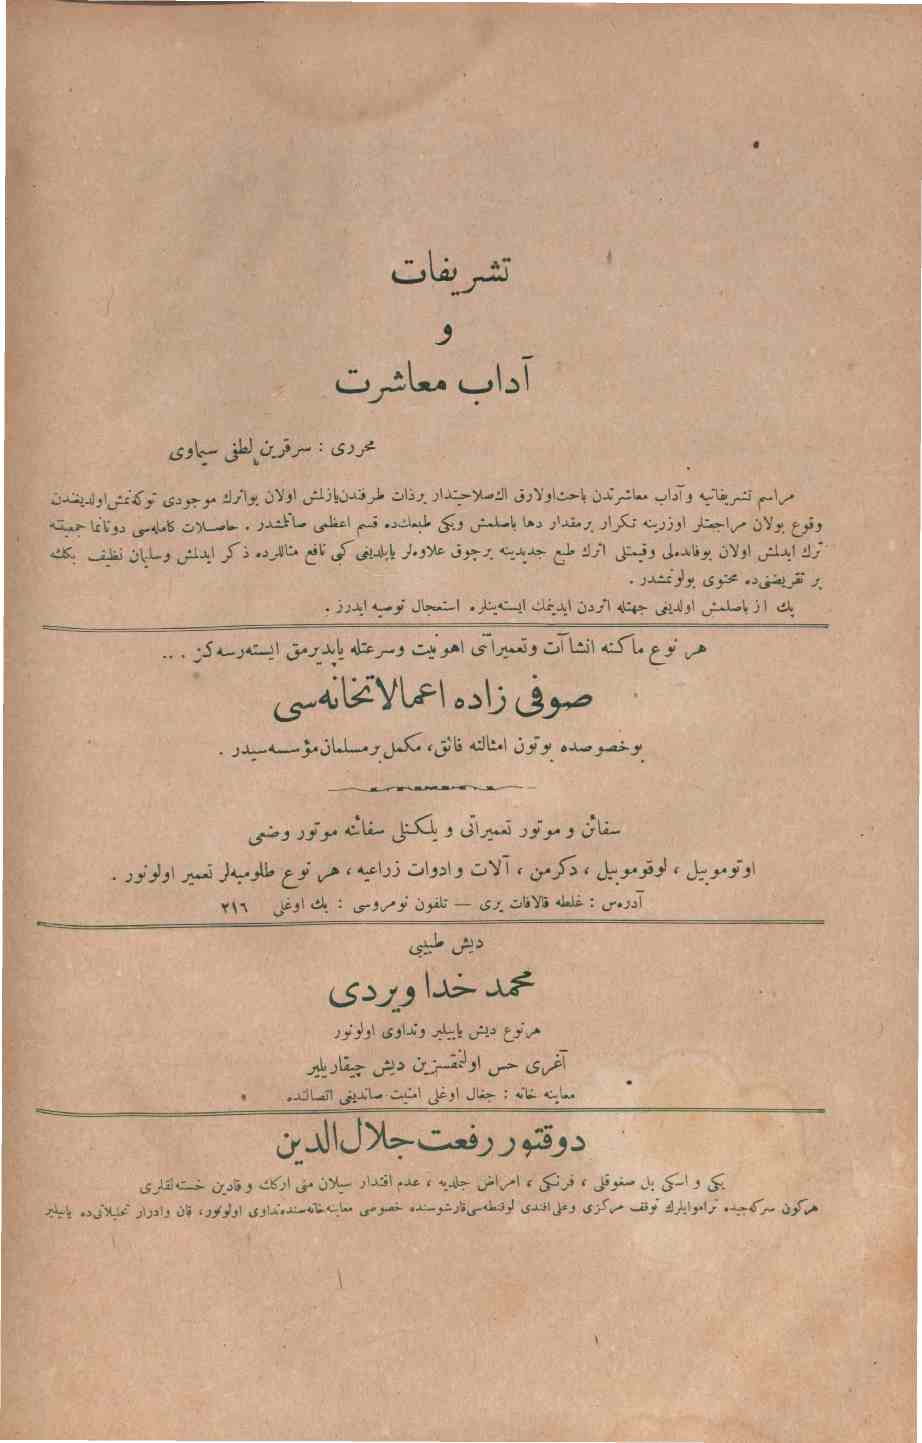 تشریفات
و
آداب معاشرت
محرری : سرقرین لطفی سیماوی
مراسم تشریفاتیه و آداب معاشرتدن باحث اولارق الك صلاحیتدار بر ذات طرفندن یازلمش اولان بو اثرك موجودی توكه‌نمش اولدیغندن
وقوع بولان مراجعتلر اوزرینه تكرار بر مقدار دها باصلمش ویكی طبعك ده قسم اعظمی صاتلمشدر . حاصلات كامله‌سی دونانما جمعیتنه
ترك ایدلمش اولان بو فائده‌لی وقیمتلی اثرك طبع جدیدینه بر چوق علاوه‌لر یاپلدیغی كبی نافع مثاللرده ذكر ایدلمش وسلیمان نظیف بكك
بر تقریضنی ده محتوی بولونمشدر .
پك از باصلمش اولدیغی جهتله اثردن ایدینمك ایسته‌ینلره استعجال توصیه ایدرز .
هر نوع ماكنه انشاآت وتعمیراتنی اهونیت وسرعتله یاپدیرمق ایسته‌رسه‌كز . ..
صوفی زاده اعمالاتخانه‌سی
بو خصوصده بوتون امثالنه فائق، مكمل بر مسلمان مؤسسه‌سیدر .
سفائن و موتور تعمیراتی و یلكنلی سفائنه موتور وضعی
اوتوموبیل ، لوقوموبیل ، دكرمن ، آلات و ادوات زراعیه ، هر نوع طلومبه‌لر تعمیر اولونور .
آدره‌س : غلطه قالافات یری — تلفون نومروسی : بك اوغلی ٢١٦
دیش طبیبی
محمد خدا ویردی
هر نوع دیش یاپیلیر وتداوی اولونور
آغری حس اولنمقسزین دیش چیقاریلیر
معاینه خانه : جغال اوغلی امنیت صاندیغی اتصالنده .
دوقتور رفعت جلال الدین
یكی و اسكی بل صغوقلغی ، فرنكی ، امراض جلدیه ، عدم اقتدار سیلان منی اركك و قادین خسته‌لقلری
هركون سركه‌جیده تراموایلرك توقف مركزی وعلی افندی لوقنطه‌سی قارشوسنده خصوصی معاینه‌خانه‌سنده تداوی اولونور، قان وادرار تحلیلاتی ده یاپیلیر